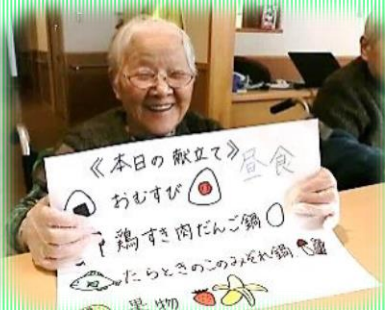 《本日の献立て》昼食
おむすび
鶏すき肉だんご鍋
たらときのこのみぞれ鍋
果物